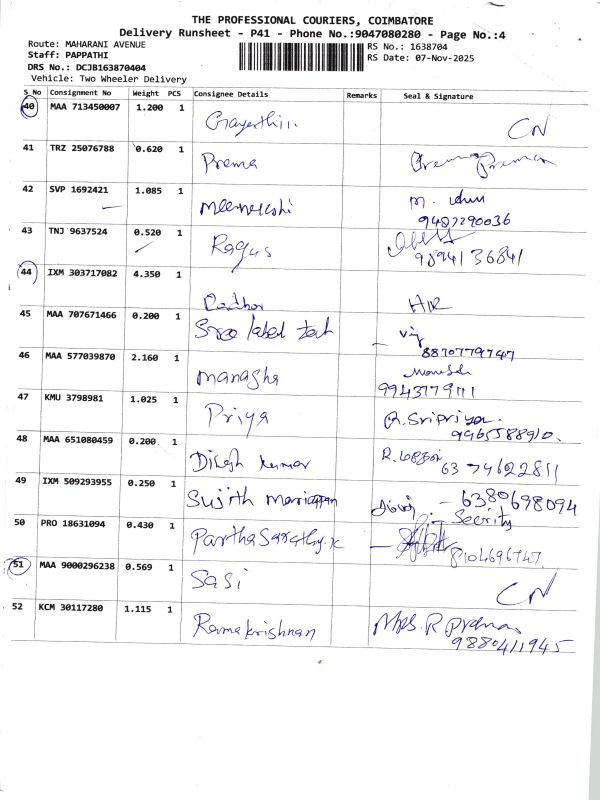 THE PROFESSIONAL COURIERS, COIMBATORE
Delivery Runsheet - P41 - Phone No.:9047080280 - Page No.:4
Route: MAHARANI AVENUE RS No.: 1638704
Staff: PAPPATHI RS Date: 07-Nov-2025
DRS No.: DCJB163870404
Vehicle: Two Wheeler Delivery
S_No Consignment No Weight PCS Consignee Details Remarks Seal & Signature
40 MAA 713450007 1.200 1 Gayathri CN
41 TRZ 25076788 0.620 1 Prema
42 SVP 1692421 1.085 1 Meenakshi M.
9487290036
43 TNJ 9637524 0.520 1 Ragus 9894136841
44 IXM 303717082 4.350 1
45 MAA 707671466 0.200 1 Sree label tech
8870779747
46 MAA 577039870 2.160 1 Managha
47 KMU 3798981 1.025 1 Priya R. Sripriya.
9965588910.
48 MAA 651080459 0.200 1 Dilesh kumar 6374622811
49 IXM 509293955 0.250 1 Sujith Mariappan - 6380698094
Security
50 PRO 18631094 0.430 1 Partha Sarathy.K 8104696747.
51 MAA 9000296238 0.569 1 Sasi CN
52 KCM 30117280 1.115 1 Ramakrishnan
9880411945